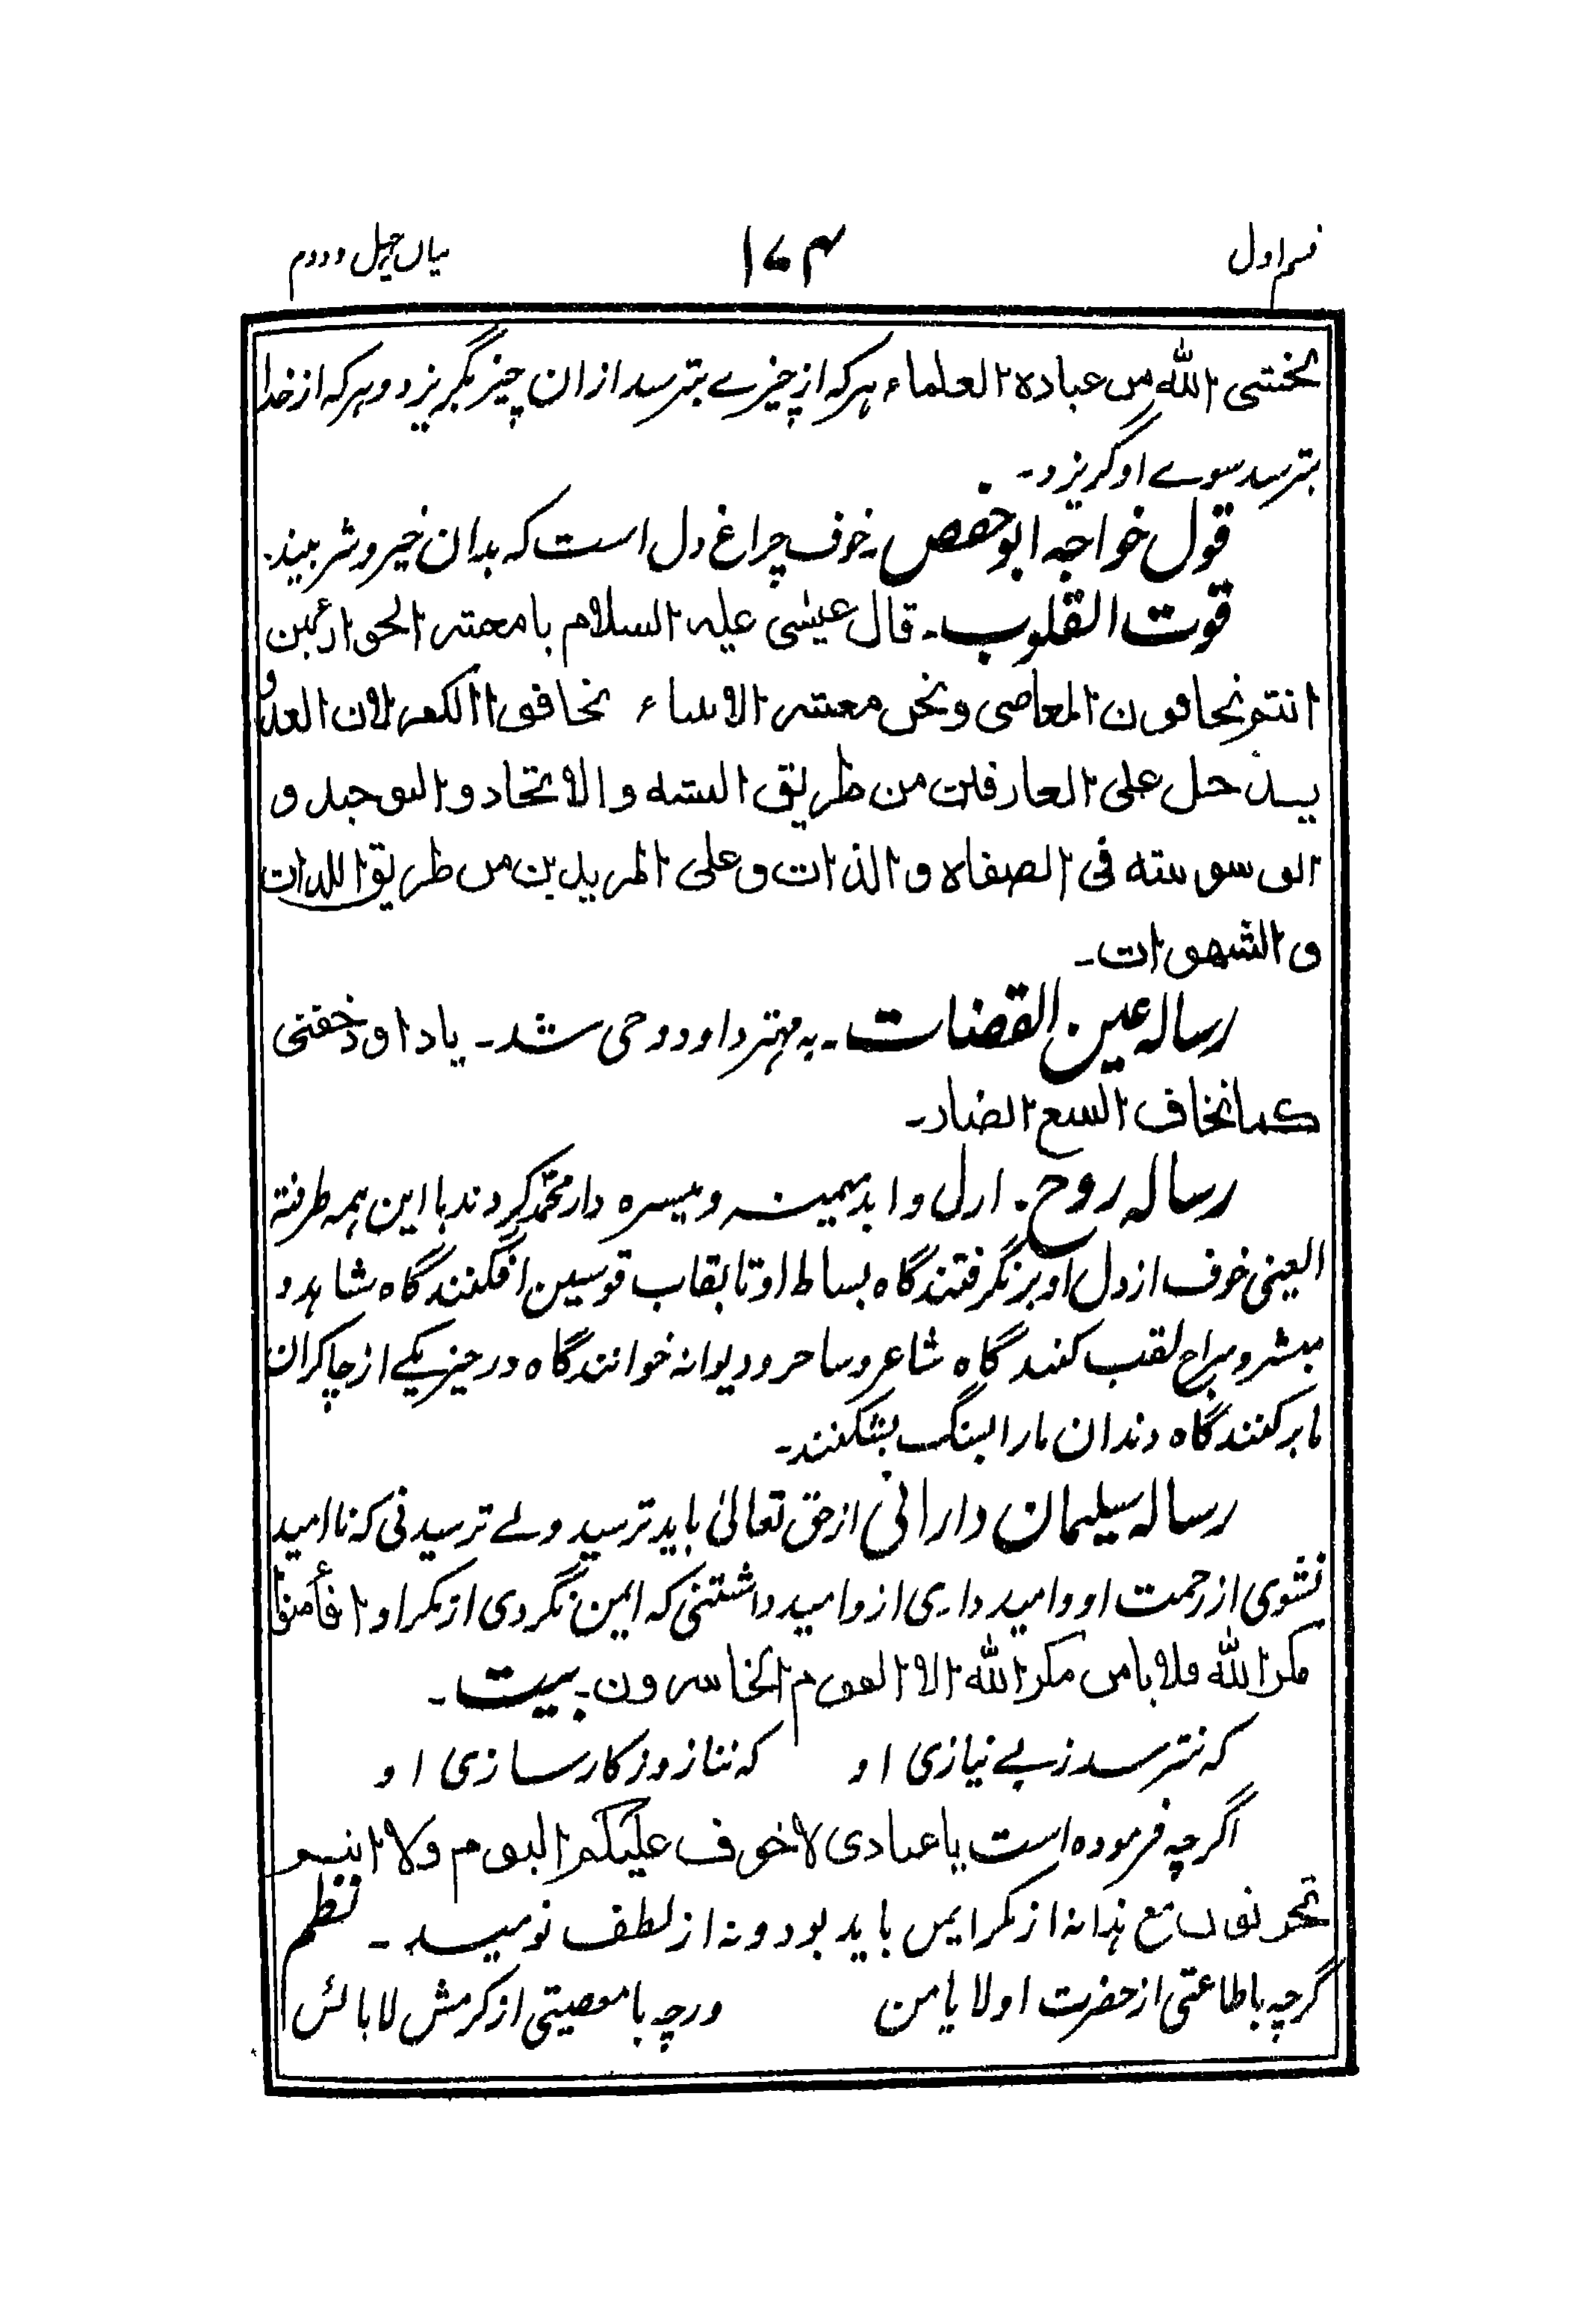 قسم اول ۱۷۴ بیان چہل و دوم
یخشی الله من عباده العلماء ہر کہ از چیزے بترسد ازان چیز بگریزد و ہر کہ از خدا
بترسد سوے او گریزد۔
قول خواجہ ابو حفص۔ خوف چراغ دل است کہ بدان خیر و شر بیند۔
قوت القلوب۔ قال عیسی علیہ السلام یا معشر الحوارئین
انتم تخافون المعاصی و نحن معشر الانبیاء نخافوا الکفر لان العدو
یدخل علی العارفین من طریق الشبہ و الاتحاد و التوحید و
الوسوسته فی الصفاه و الذات و علی المریدین من طریق اللذات
و الشهوات۔
رسالہ عین القضات۔ بہ مہتر داود وحی شد۔ یا داود خفنی
کما تخاف السبع الضار۔
رسالہ روح۔ ازل و ابد میمنہ و میسرہ دار محمد کردند با این ہمہ طرفتہ
العینی خوف از دل او برنگرفتند گاہ بساط او تا بقاب قوسین افگنند گاہ شاہد و
مبشر و سراج لقب کنند گاہ شاعر و ساحر و دیوانہ خوانند گاہ در حیز یکے از چاکران
ما برکنند گاہ دندان ما را بسنگ بشکنند۔
رسالہ سیلمان دارانی از حق تعالیٰ باید ترسید ولے ترسیدنی کہ نا امید
نشوی از رحمت او و امید داری از و امید داشتنی کہ ایمن نگردی از مکر او افأمنوا
مکر الله فلا یامن مکر الله الا القوم الخاسرون۔ بیت۔
کہ نترسد ز بے نیازی او کہ ننازد ز کارسازی او
اگرچہ فرمودہ است یا عبادی لا خوف علیکم الیوم ولا انتم
تحزنون مع ہذا نہ از مکر ایمن باید بود و نہ از لطف نومید۔ نظم
گرچہ با طاعتی از حضرت او لا یامن ورچہ با معصیتی از کرمش لا بائس